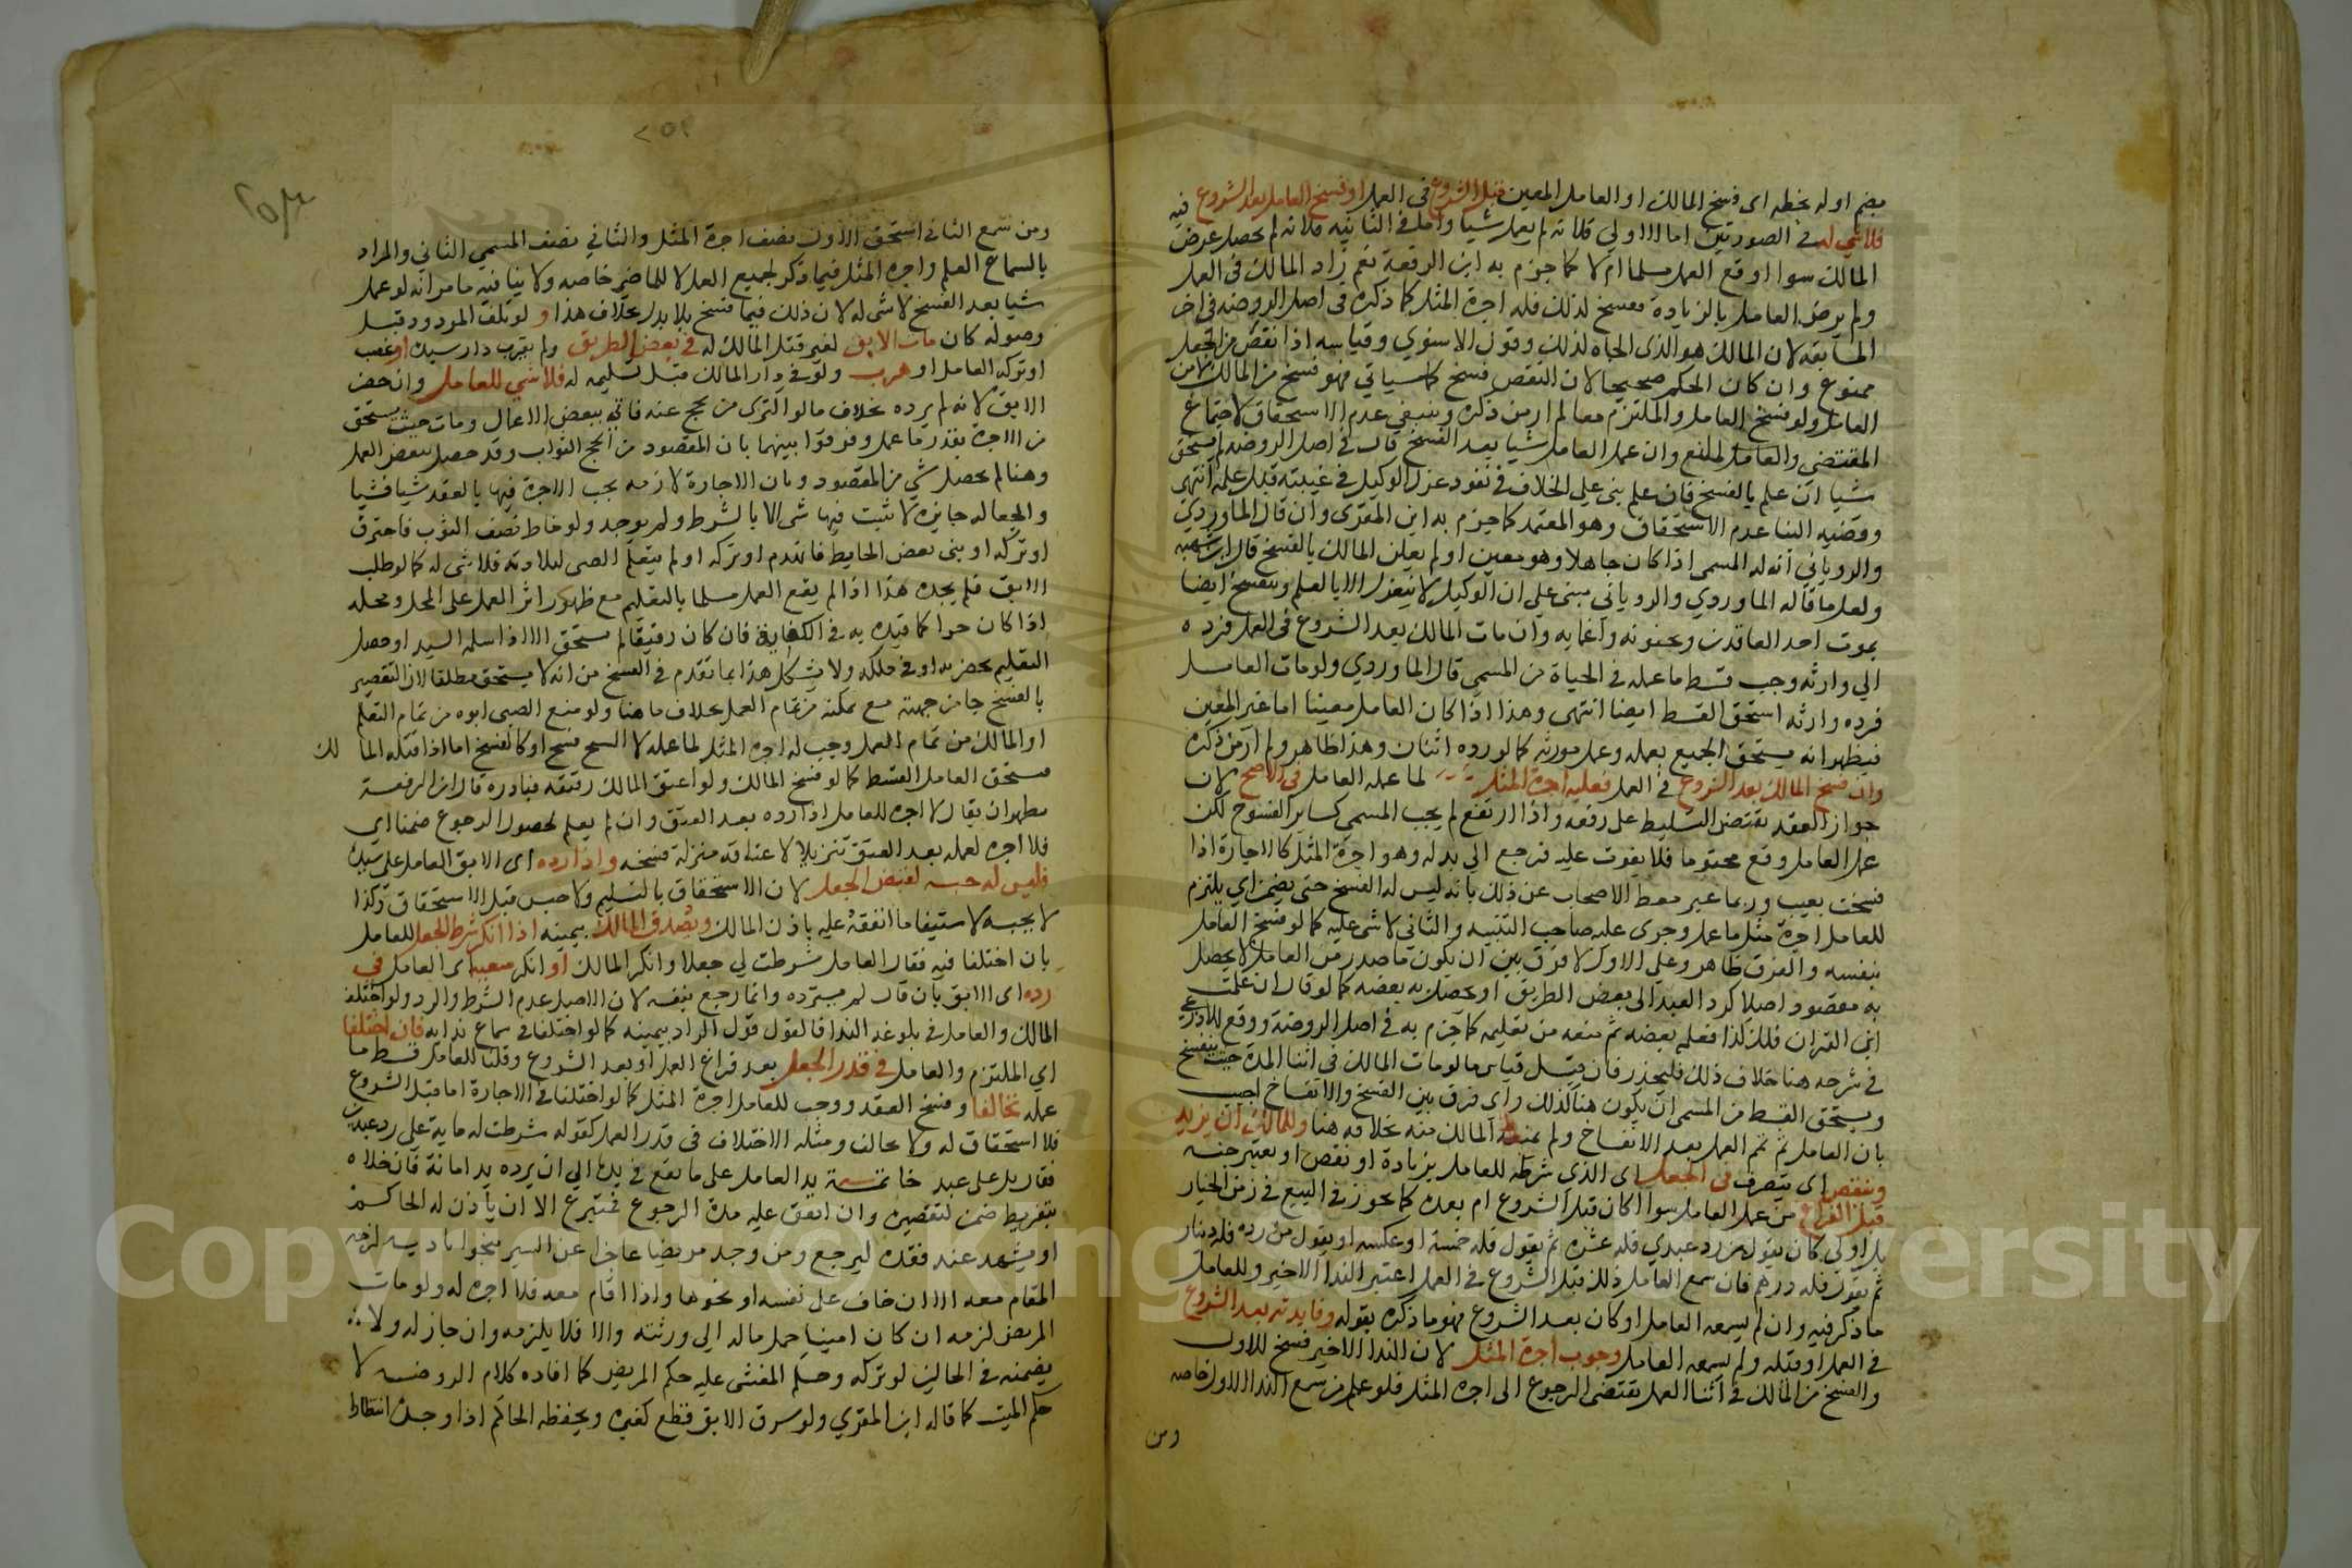 بضم اوله بخطه اى فسخ المالك او العامل المعين قبل الشروع فى العمل او فسخ العامل بعد الشروع فيه
فلا شي له في الصورتين اما الاولي فلانه لم يعمل شيا واما في الثانيه فلانه لم يحصل غرض
المالك سوا اوقع العمل مسلما ام لا كما جزم به ابن الرفعة نعم زاد المالك فى العمل
ولم يرض العامل بالزيادة ففسخ لذلك فله اجرة المثل كما ذكره فى اصل الروضه فى اخر
المسابقه لان المالك هو الذى الجاه لذلك وقول الاسنوي وقياسه اذا نقص من الجعل
ممنوع وان كان الحكم صحيحا لان النقص فسخ كما سياتي فهو فسخ من المالك لا من
العامل ولو فسخ العامل والملتزم معا لم ار من ذكره وينبغي عدم الاستحقاق لاجتماع
المقتضي والمانع وان عمل العامل شيا بعد الفسخ قال في اصل الروضه لم يستحق
شيا ان علم بالفسخ فان لم يعلم بنى على الخلاف في نفوذ عزل الوكيل في غيبته قبل علمه انتهى
وقضيه البنا عدم الاستحقاق وهو المعتمد كما جزم به ابن المقرى وان قال الماوردي
والروياني ان له المسمى اذا كان جاهلا وهو معين او لم يعلن المالك بالفسخ قال ابن شهبه
ولعل ما قاله الماوردي والروياني مبني علي ان الوكيل لا ينعزل الا بالعلم وينفسخ ايضا
بموت احد العاقدين وجنونه واغمايه وان مات المالك بعد الشروع فى العمل فرده
الي وارثه وجب قسط ما عمله في الحياة من المسمي قال الماوردي ولو مات العامل
فرده وارثه استحق القسط ايضا انتهى وهذا اذا كان العامل معينا اما غير المعين
فيظهر انه يستحق الجميع بعمله وعمل مورثه كما لو رده اثنان وهذا ظاهر ولم ار من ذكره
وان فسخ المالك بعد الشروع في العمل فعليه اجرة المثل لما عمله العامل فى الاصح لان
جواز العقد يقتضى التسليط على رفعه واذا ارتفع لم يجب المسمي كساير الفسوخ لكن
عمل العامل وقع محتوما فلا يفوت عليه فرجع الي بدله وهو اجرة المثل كالاجارة اذا
فسخت بعيب وربما عبر بعض الاصحاب عن ذلك بانه ليس له الفسخ حتى يضمن اي يلتزم
للعامل اجرة مثل ما عمل وجرى عليه صاحب التنبيه والثاني لا شي عليه كما لو فسخ العامل
بنفسه والفرق ظاهر وعلى الاول لا فرق بين ان يكون ما صدر من العامل لا يحصل
به مقصود اصلا كرد العبد الى بعض الطريق او يحصل به بعضه كما لو قال ان علمت
ابني القران فلك كذا فعلمه بعضه ثم منعه من تعليمه كما جزم به في اصل الروضة ووقع للاذرعي
في شرحه هنا خلاف ذلك فليحذر فان قيل قياس ما لو مات المالك في اثنا المدة حيث ينفسخ
ويستحق القسط من المسمى ان يكون هنا كذلك واي فرق بين الفسخ والانفساخ اجيب
بان العامل ثم تمم العمل بعد الانفساخ ولم يمنعه المالك منه بخلافه هنا وللمالك ان يزيد
وينقص اى يتصرف في الجعل اى الذى شرطه للعامل بزيادة او نقص او بتغير جنسه
قبل الفراغ من عمل العامل سوا اكان قبل الشروع ام بعده كما يجوز في البيع في زمن الخيار
بل اولى كان يقول من رد عبدي فله عشرة ثم يقول فله خمسة او عكسه او يقول من رده فله دينار
ثم يقول فله درهم فان سمع العامل ذلك قبل الشروع في العمل اعتبر الندا الاخير وللعامل
ما ذكر فيه وان لم يسمعه العامل او كان بعد الشروع فهو ما ذكره بقوله وفايدته بعد الشروع
في العمل او قبله ولم يسمعه العامل وجوب اجرة المثل لان الندا الاخير فسخ للاول
والفسخ من المالك في اثنا العمل يقتضى الرجوع الى اجرة المثل فلو عمل من سمع الندا الاول خاصه
ومن
٢٥٢
٢٥٣
ومن سمع الثاني استحق الاول نصف اجرة المثل والثاني نصف المسمي الثاني والمراد
بالسماع العلم واجرة المثل فيما ذكر لجميع العمل لا للماضي خاصه ولا ينافيه ما مر انه لو عمل
شيا بعد الفسخ لا شى له لان ذلك فيما فسخ بلا بدل بخلاف هذا ولو تلف المردود قبل
وصوله كان مات الابق لغير قتل المالك له في بعض الطريق ولو بقرب دار سيده او غصب
او تركه العامل او هرب ولو في دار المالك قبل تسليمه له فلا شي للعامل وان حضر
الابق لانه لم يرده بخلاف ما لو اكترى من يحج عنه فاتي ببعض الاعمال ومات حيث يستحق
من الاجرة بقدر ما عمل وفرقوا بينهما بان المقصود من الحج الثواب وقد حصل ببعض العمل
وهنا لم يحصل شي من المقصود وبان الاجارة لازمه يجب الاجرة فيها بالعقد شيا فشيا
والجعاله جايزة لا تثبت فيها شى الا بالشرط ولم يوجد ولو خاط نصف الثوب فاحترق
او تركه او بنى بعض الحايط فانهدم او تركه او لم يتعلم الصبى لبلادته فلا شى له كما لو طلب
الابق فلم يجده هذا اذا لم يقع العمل مسلما بالتعليم مع ظهور اثر العمل على المحل ومحله
اذا كان حرا كما قيده به في الكفاية فان كان رقيقا لم يستحق الا اذا سلمه السيد او حصل
التعليم بحضرته او في ملكه ولا يشكل هذا بما تقدم في الفسخ من انه لا يستحق مطلقا لان التقصير
بالفسخ جا من جهته مع تمكنه من تمام العمل بخلاف ما هنا ولو منع الصبي ابوه من تمام التعلم
او المالك من تمام العمل وجب له اجرة المثل لما عمله لان المنع فسخ او كالفسخ اما اذا قتله المالك
فيستحق العامل القسط كما لو فسخ المالك ولو اعتق المالك رقيقه قبل رده قال ابن الرفعة
يظهر ان يقال لا اجره للعامل اذا رده بعد العتق وان لم يعلم لحصول الرجوع ضمنا اي
فلا اجرة لعمله بعد العتق تنزيلا لاعتاقه منزلة فسخه واذا رده اى الابق العامل على سيده
فليس له حبسه لقبض الجعل لان الاستحقاق بالتسليم ولا حبس قبل الاستحقاق وكذا
لا يحبسه لاستيفا ما انفقه عليه باذن المالك ويصدق المالك بيمينه اذا انكر شرط الجعل للعامل
بان اختلفا فيه فقال العامل شرطت لي جعلا وانكر المالك او انكر سعيه اى العامل في
رده اى الابق بان قال لم يسترده وانما رجع بنفسه لان الاصل عدم الشرط والرد ولو اختلف
المالك والعامل في بلوغه الندا فالقول قول الراد بيمينه كما لو اختلفا في سماع ندايه فان اختلفا
اي الملتزم والعامل في قدر الجعل بعد فراغ العمل او بعد الشروع وقلنا للعامل قسط ما
عمله تحالفا وفسخ العقد ووجب للعامل اجرة المثل كما لو اختلفا في الاجارة اما قبل الشروع
فلا استحقاق له ولا تحالف ومثله الاختلاف في قدر العمل كقوله شرطت له ماية على رد عبدين
فقال بل على عبد خاتمة يد العامل على ما يقع في يده الي ان يرده يد امانة فان خلاه
بتفريط ضمن لتقصيره وان انفق عليه مدة الرجوع فمتبرع الا ان ياذن له الحاكم
او يشهد عند فقده ليرجع ومن وجد مريضا عاجزا عن السير بنحو بادية لزمه
المقام معه الا ان خاف على نفسه او نحوها واذا اقام معه فلا اجرة له ولو مات
المريض لزمه ان كان امينا حمل ماله الي ورثته والا فلا يلزمه وان جاز له ولا
يضمنه في الحالين لو تركه وحكم المغشى عليه حكم المريض كما افاده كلام الروضه لا
حكم الميت كما قاله ابن المقري ولو سرق الابق قطع كغيره ويحفظه الحاكم اذا وجده انتظارا
Copyright © King University